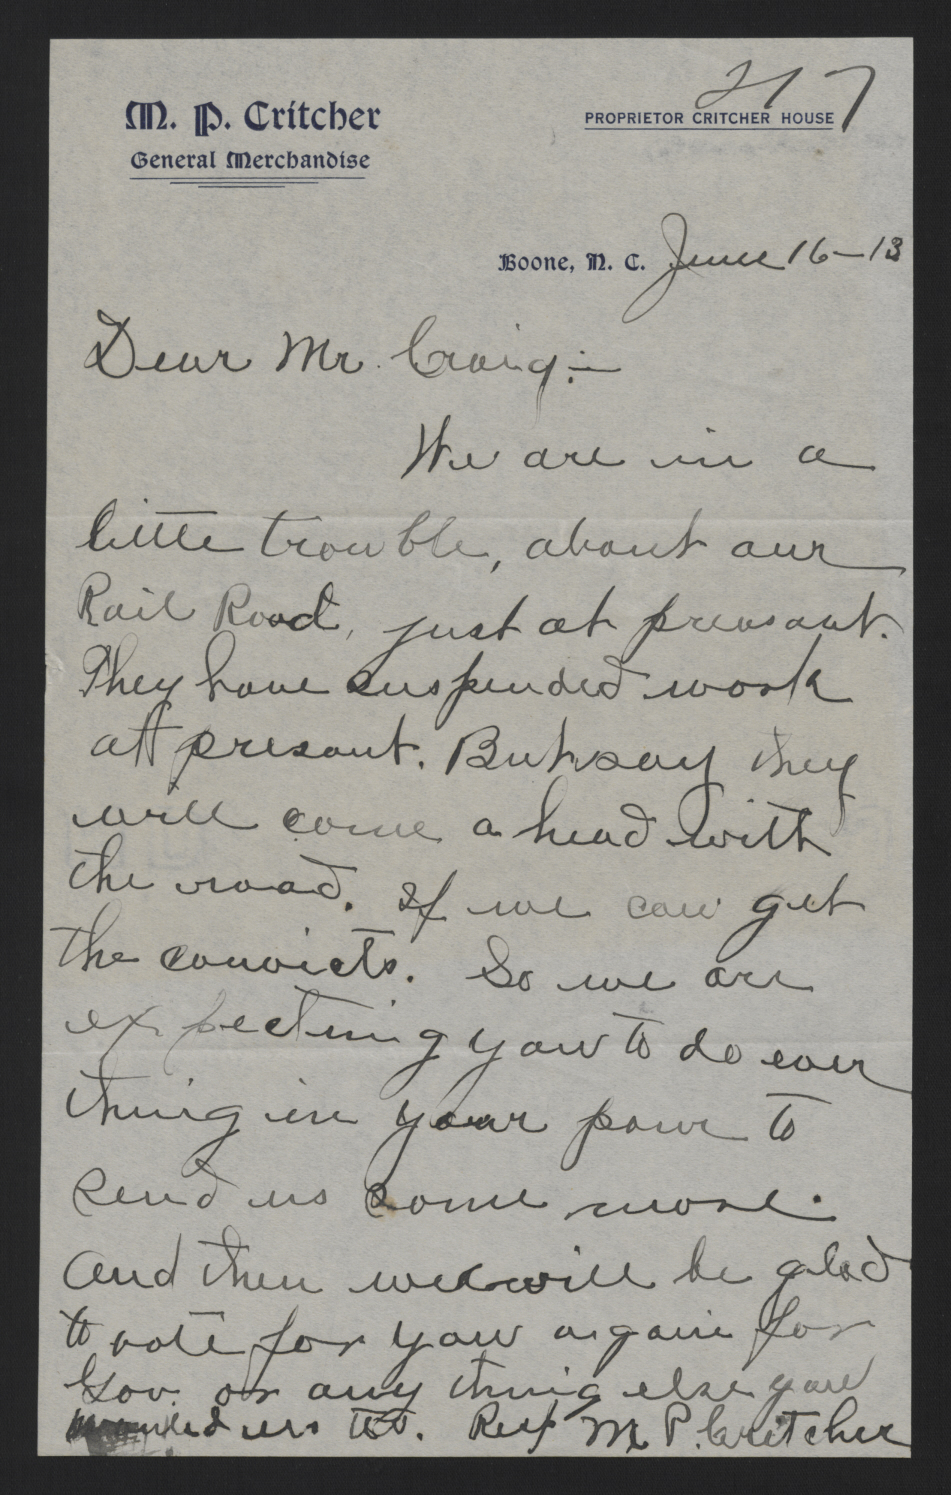 217
M. P. Critcher
General Merchandise
PROPRIETOR CRITCHER HOUSE
Boone, N. C. June 16-13
Dear Mr. Craig:-
We are in a
little trouble, about our
Rail Road, just at preasant.
They have suspended work
att presant. But say they
will come a head with
the road. If we can get
the convicts. So we are
expecting you to do ever
thing in your powr to
send us some more.
And then we will be glad
to vote for you again for
Gov. or any thing else you
us to. Resp M. P. Critcher